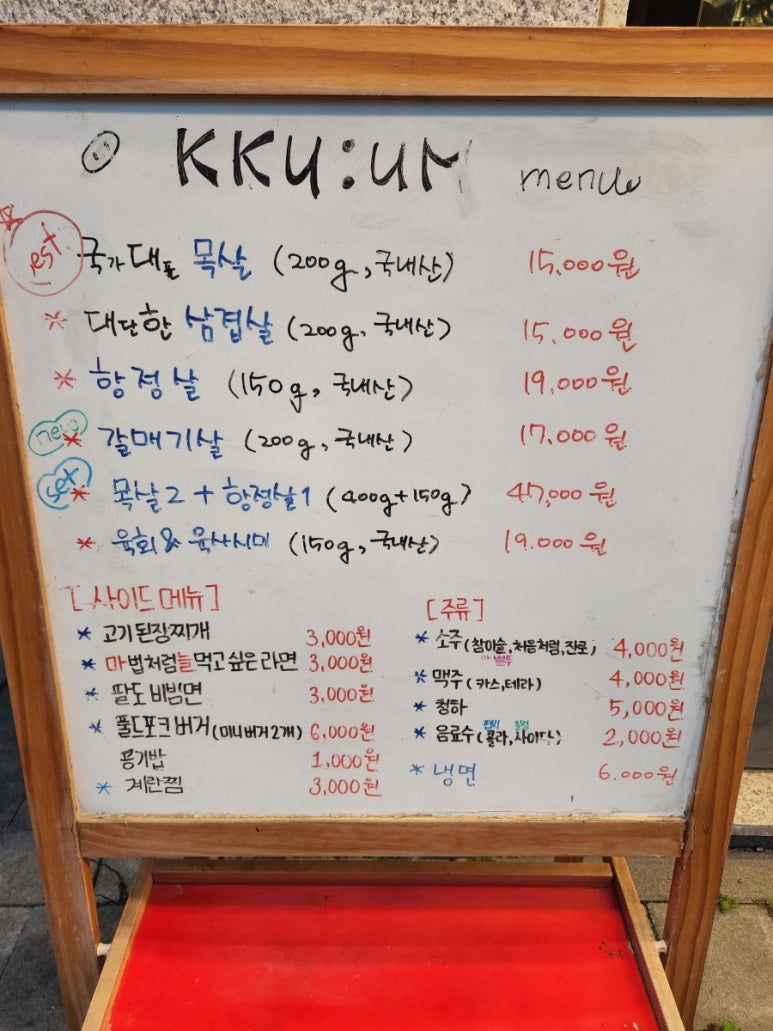 KKU:UM menu
est 국가대표 목살 (200g, 국내산) 15,000원
* 대단한 삼겹살 (200g, 국내산) 15,000원
* 항정살 (150g, 국내산) 19,000원
new * 갈매기살 (200g, 국내산) 17,000원
set * 목살2 + 항정살1 (400g+150g) 47,000원
* 육회 & 육사시미 (150g, 국내산) 19,000원
[사이드메뉴]
* 고기된장찌개 3,000원
* 마법처럼늘먹고싶은라면 3,000원
* 팔도비빔면 3,000원
* 풀드포크버거(미니버거2개) 6,000원
공기밥 1,000원
* 계란찜 3,000원
[주류]
* 소주(참이슬,처음처럼,진로) 4,000원
* 맥주(카스,테라) 4,000원
* 청하 5,000원
펩시
* 음료수(콜라,사이다) 2,000원
* 냉면 6,000원